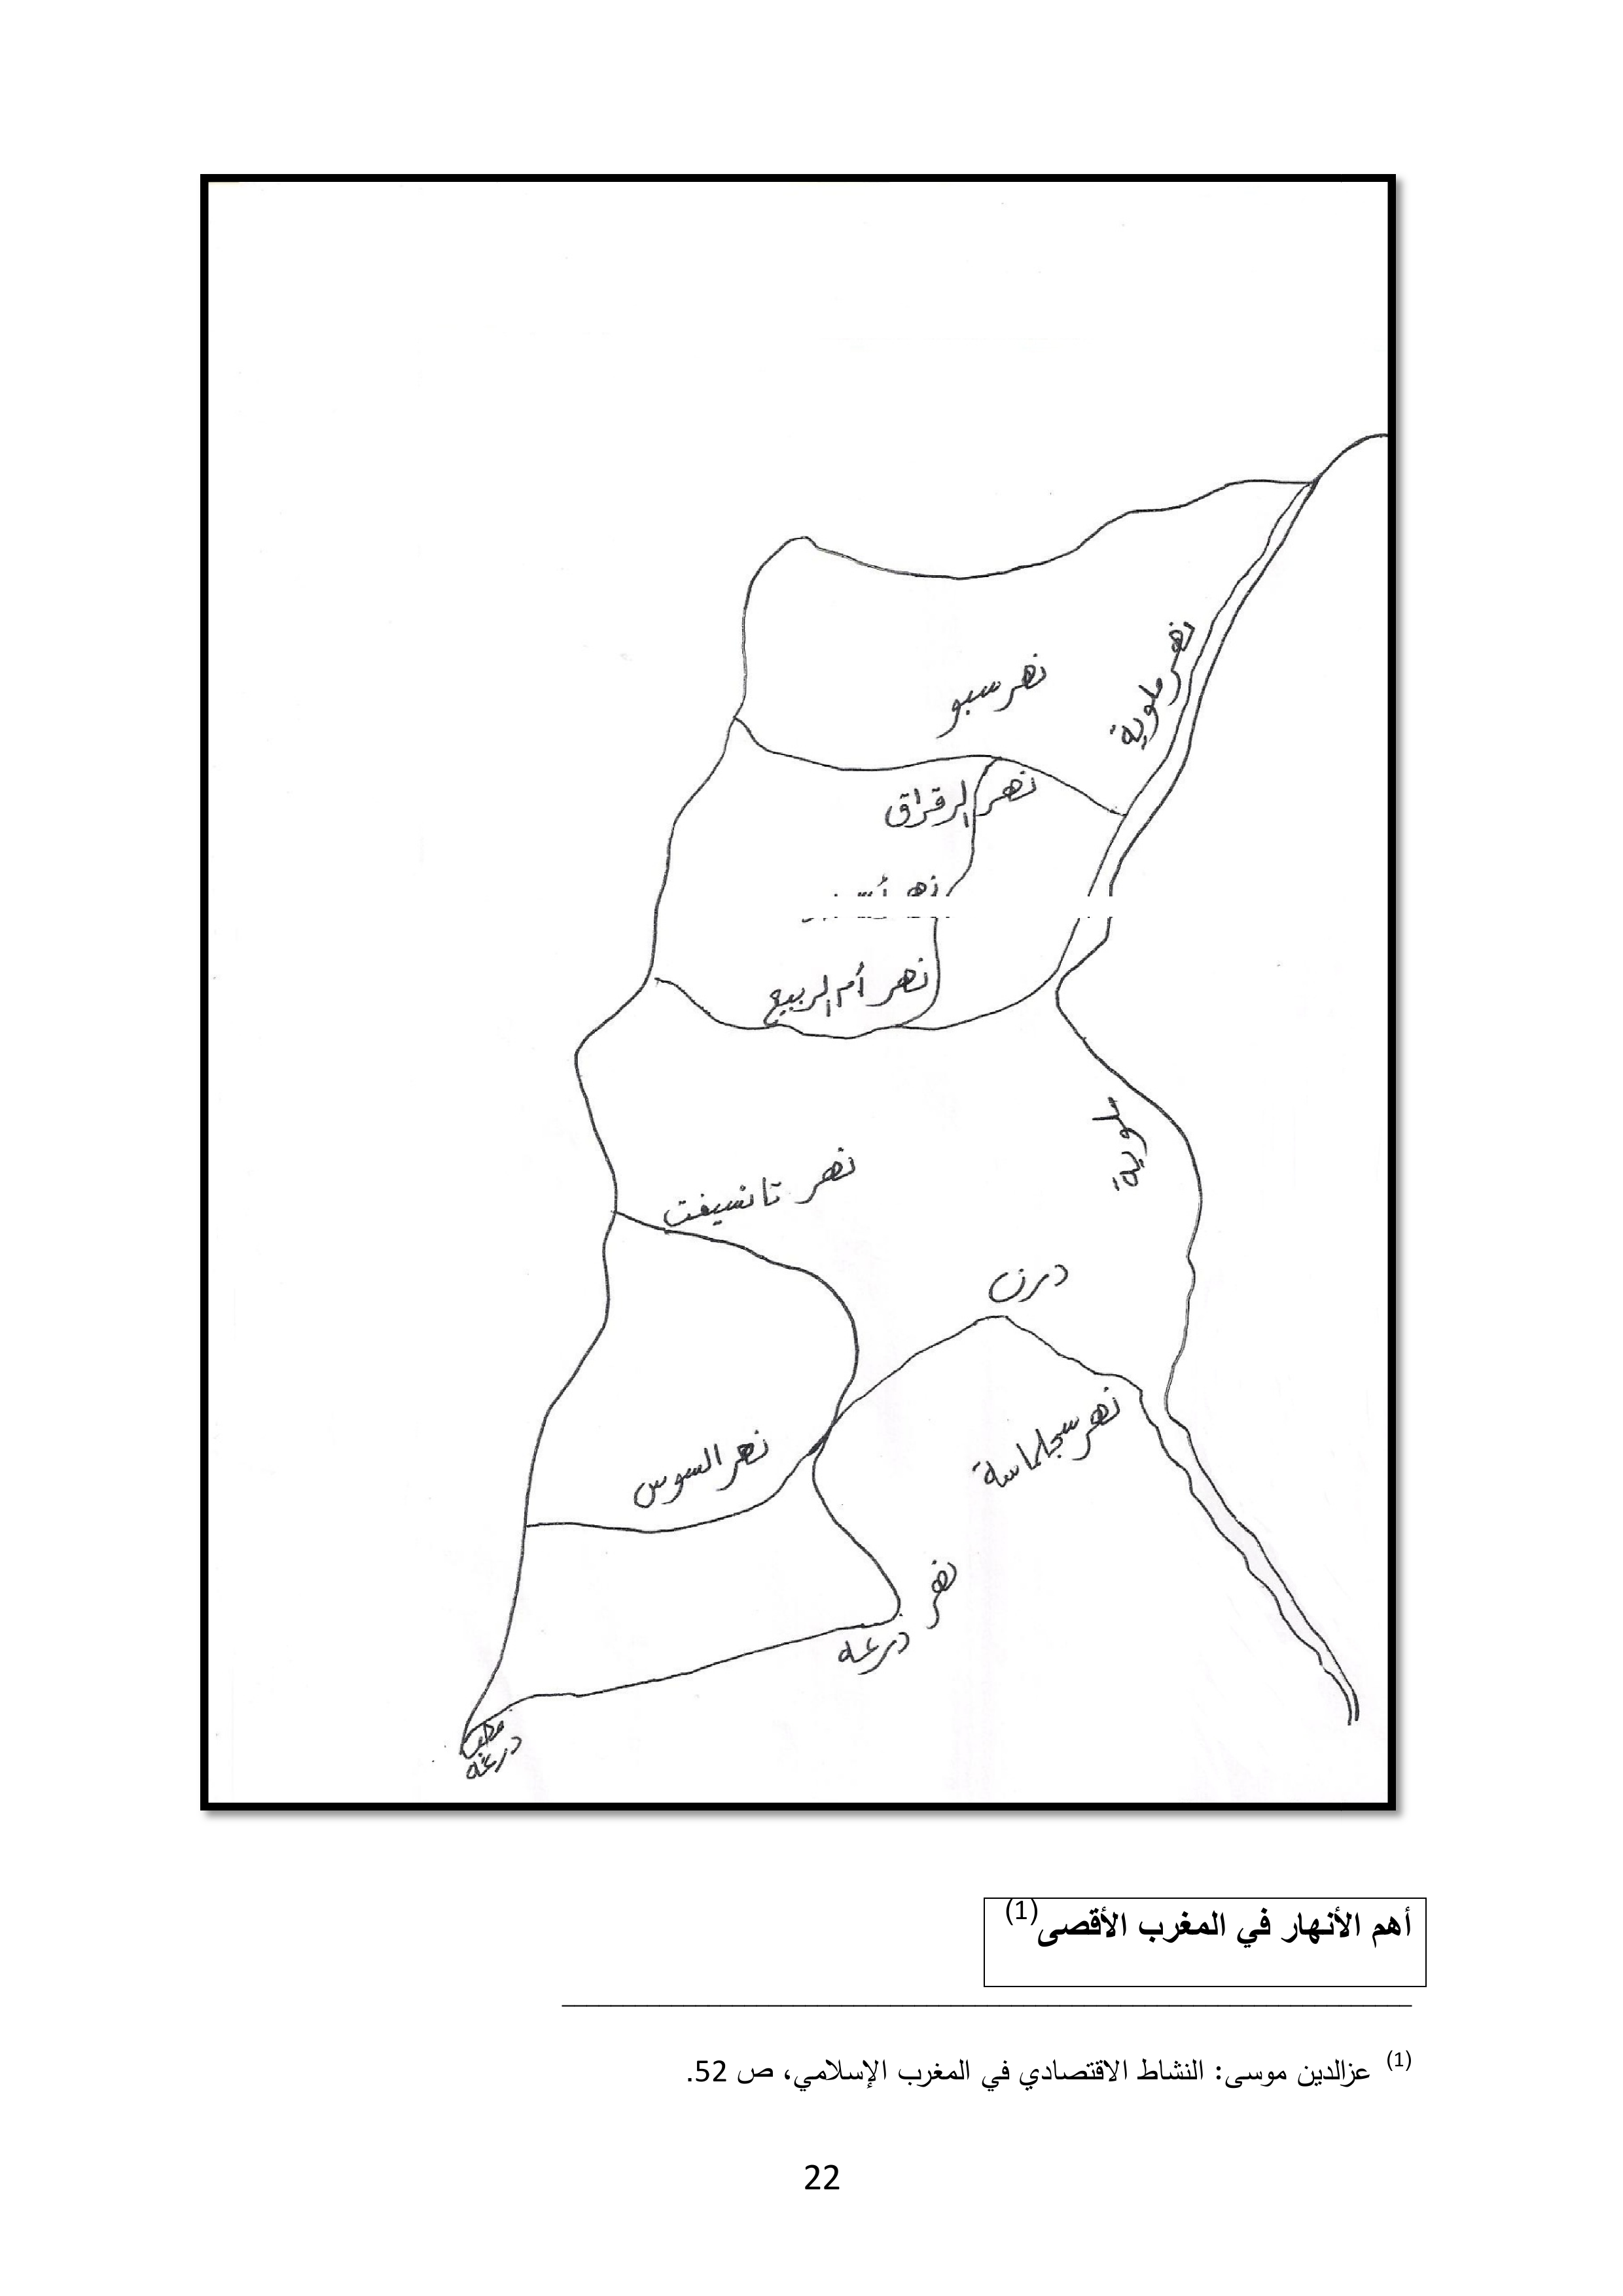 نهر ملوية
نهر سبو
نهر الرقراق
نهر
نهر أم الربيع
ملوية
نهر تانسيفت
درن
نهر سجلماسة
نهر السوس
نهر
درعه
درعه
أهم الأنهار في المغرب الأقصى(1)
(1) عزالدين موسى: النشاط الاقتصادي في المغرب الإسلامي، ص 52.
22